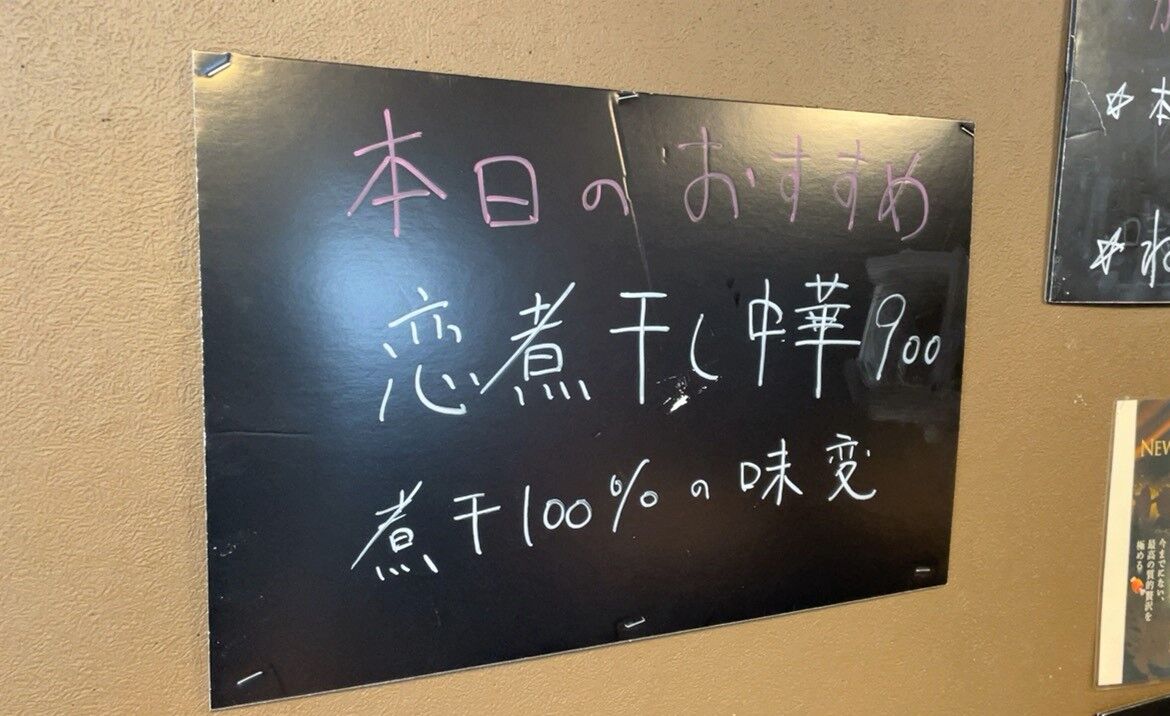 本日のおすすめ
恋煮干し中華900
煮干100%の味変
☆本
☆ね
NEW
今までにない、
最高の質的贅沢を
極める